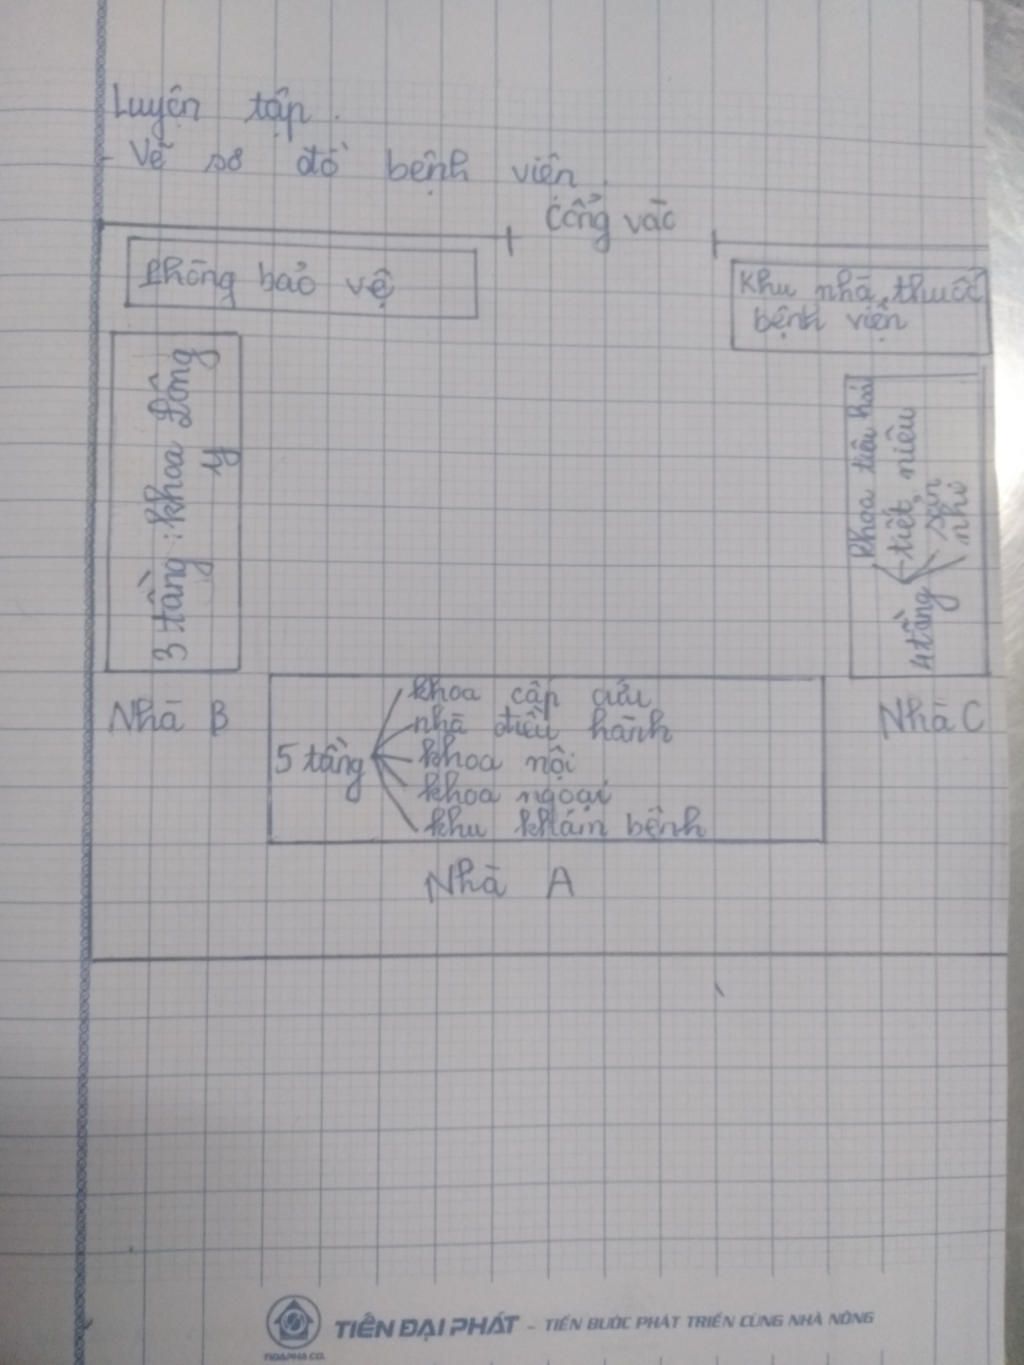 Luyện tập.
- Vẽ sơ đồ bệnh viện.
Cổng vào
Phòng bảo vệ
Khu nhà thuốc
bệnh viện
3 tầng: khoa Đông
y
Khoa tiêu hóa
tiết niệu
sản
nhi
4 tầng
Nhà B
Nhà C
khoa cấp cứu
nhà điều hành
5 tầng
khoa nội
khoa ngoại
khu khám bệnh
Nhà A
TIẾN ĐẠI PHÁT - TIẾN BƯỚC PHÁT TRIỂN CÙNG NHÀ NÔNG
TIDAPHA CO.